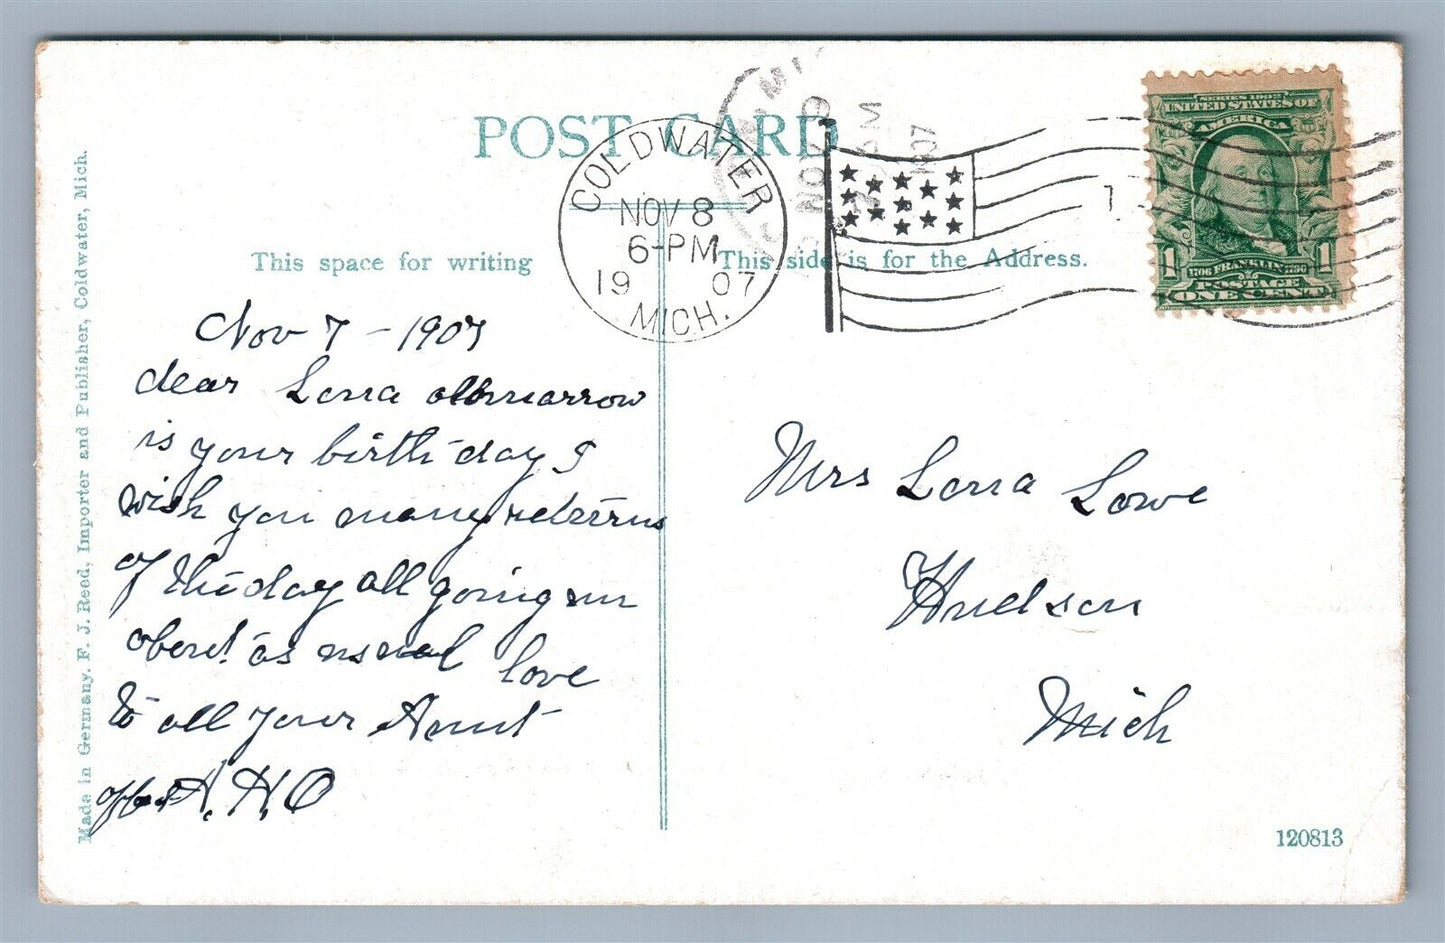 POST CARD
This space for writing
This side is for the Address.
COLDWATER
NOV 8
6-PM
1907
MICH.
NOV 9
AM
1907
1
SERIES 1902
UNITED STATES OF
AMERICA
1706 FRANKLIN 1790
1 1
POSTAGE
ONE CENT
Nov 7 - 1907
dear Lorra
is your birth day I
wish you many returns
of the day all going on
as usual love
to all your Aunt
A. H. O
Mrs Lorra Lowe
Hudson
Mich
Made in Germany. F. J. Reed, Importer and Publisher, Coldwater, Mich.
120813